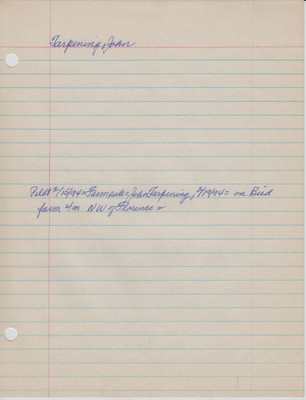 Tarpening, John
2/15/94= Farm sale= John Tarpening, 2/19/94= on Bird
farm 4m NW of Florence=